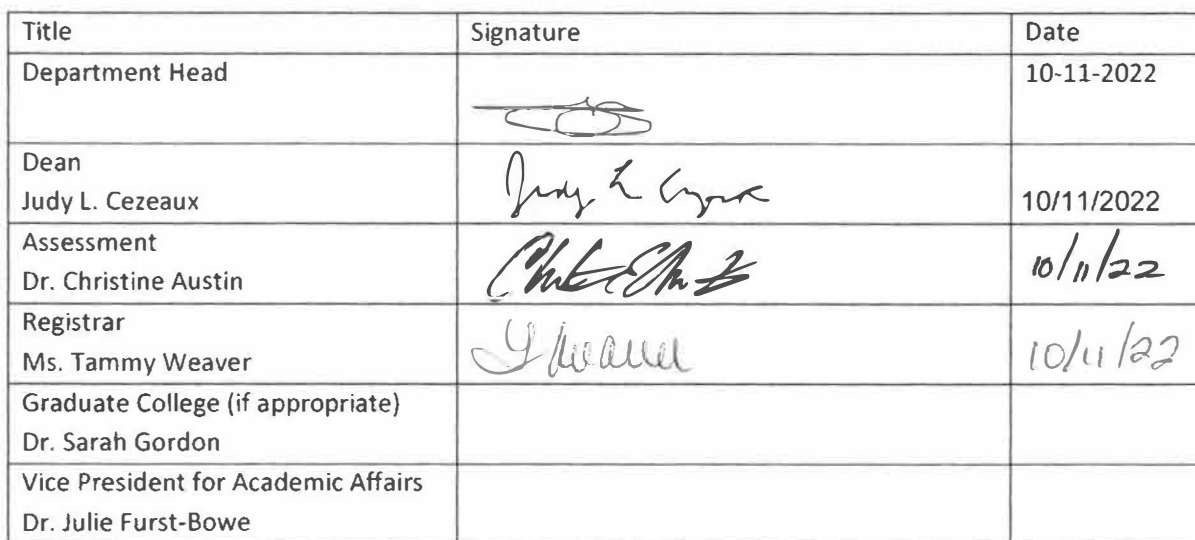 Title Signature Date
Department Head 10-11-2022
Dean
Judy L. Cezeaux Judy L Cezeaux 10/11/2022
Assessment
Dr. Christine Austin 10/11/22
Registrar
Ms. Tammy Weaver T Weaver 10/11/22
Graduate College (if appropriate)
Dr. Sarah Gordon
Vice President for Academic Affairs
Dr. Julie Furst-Bowe